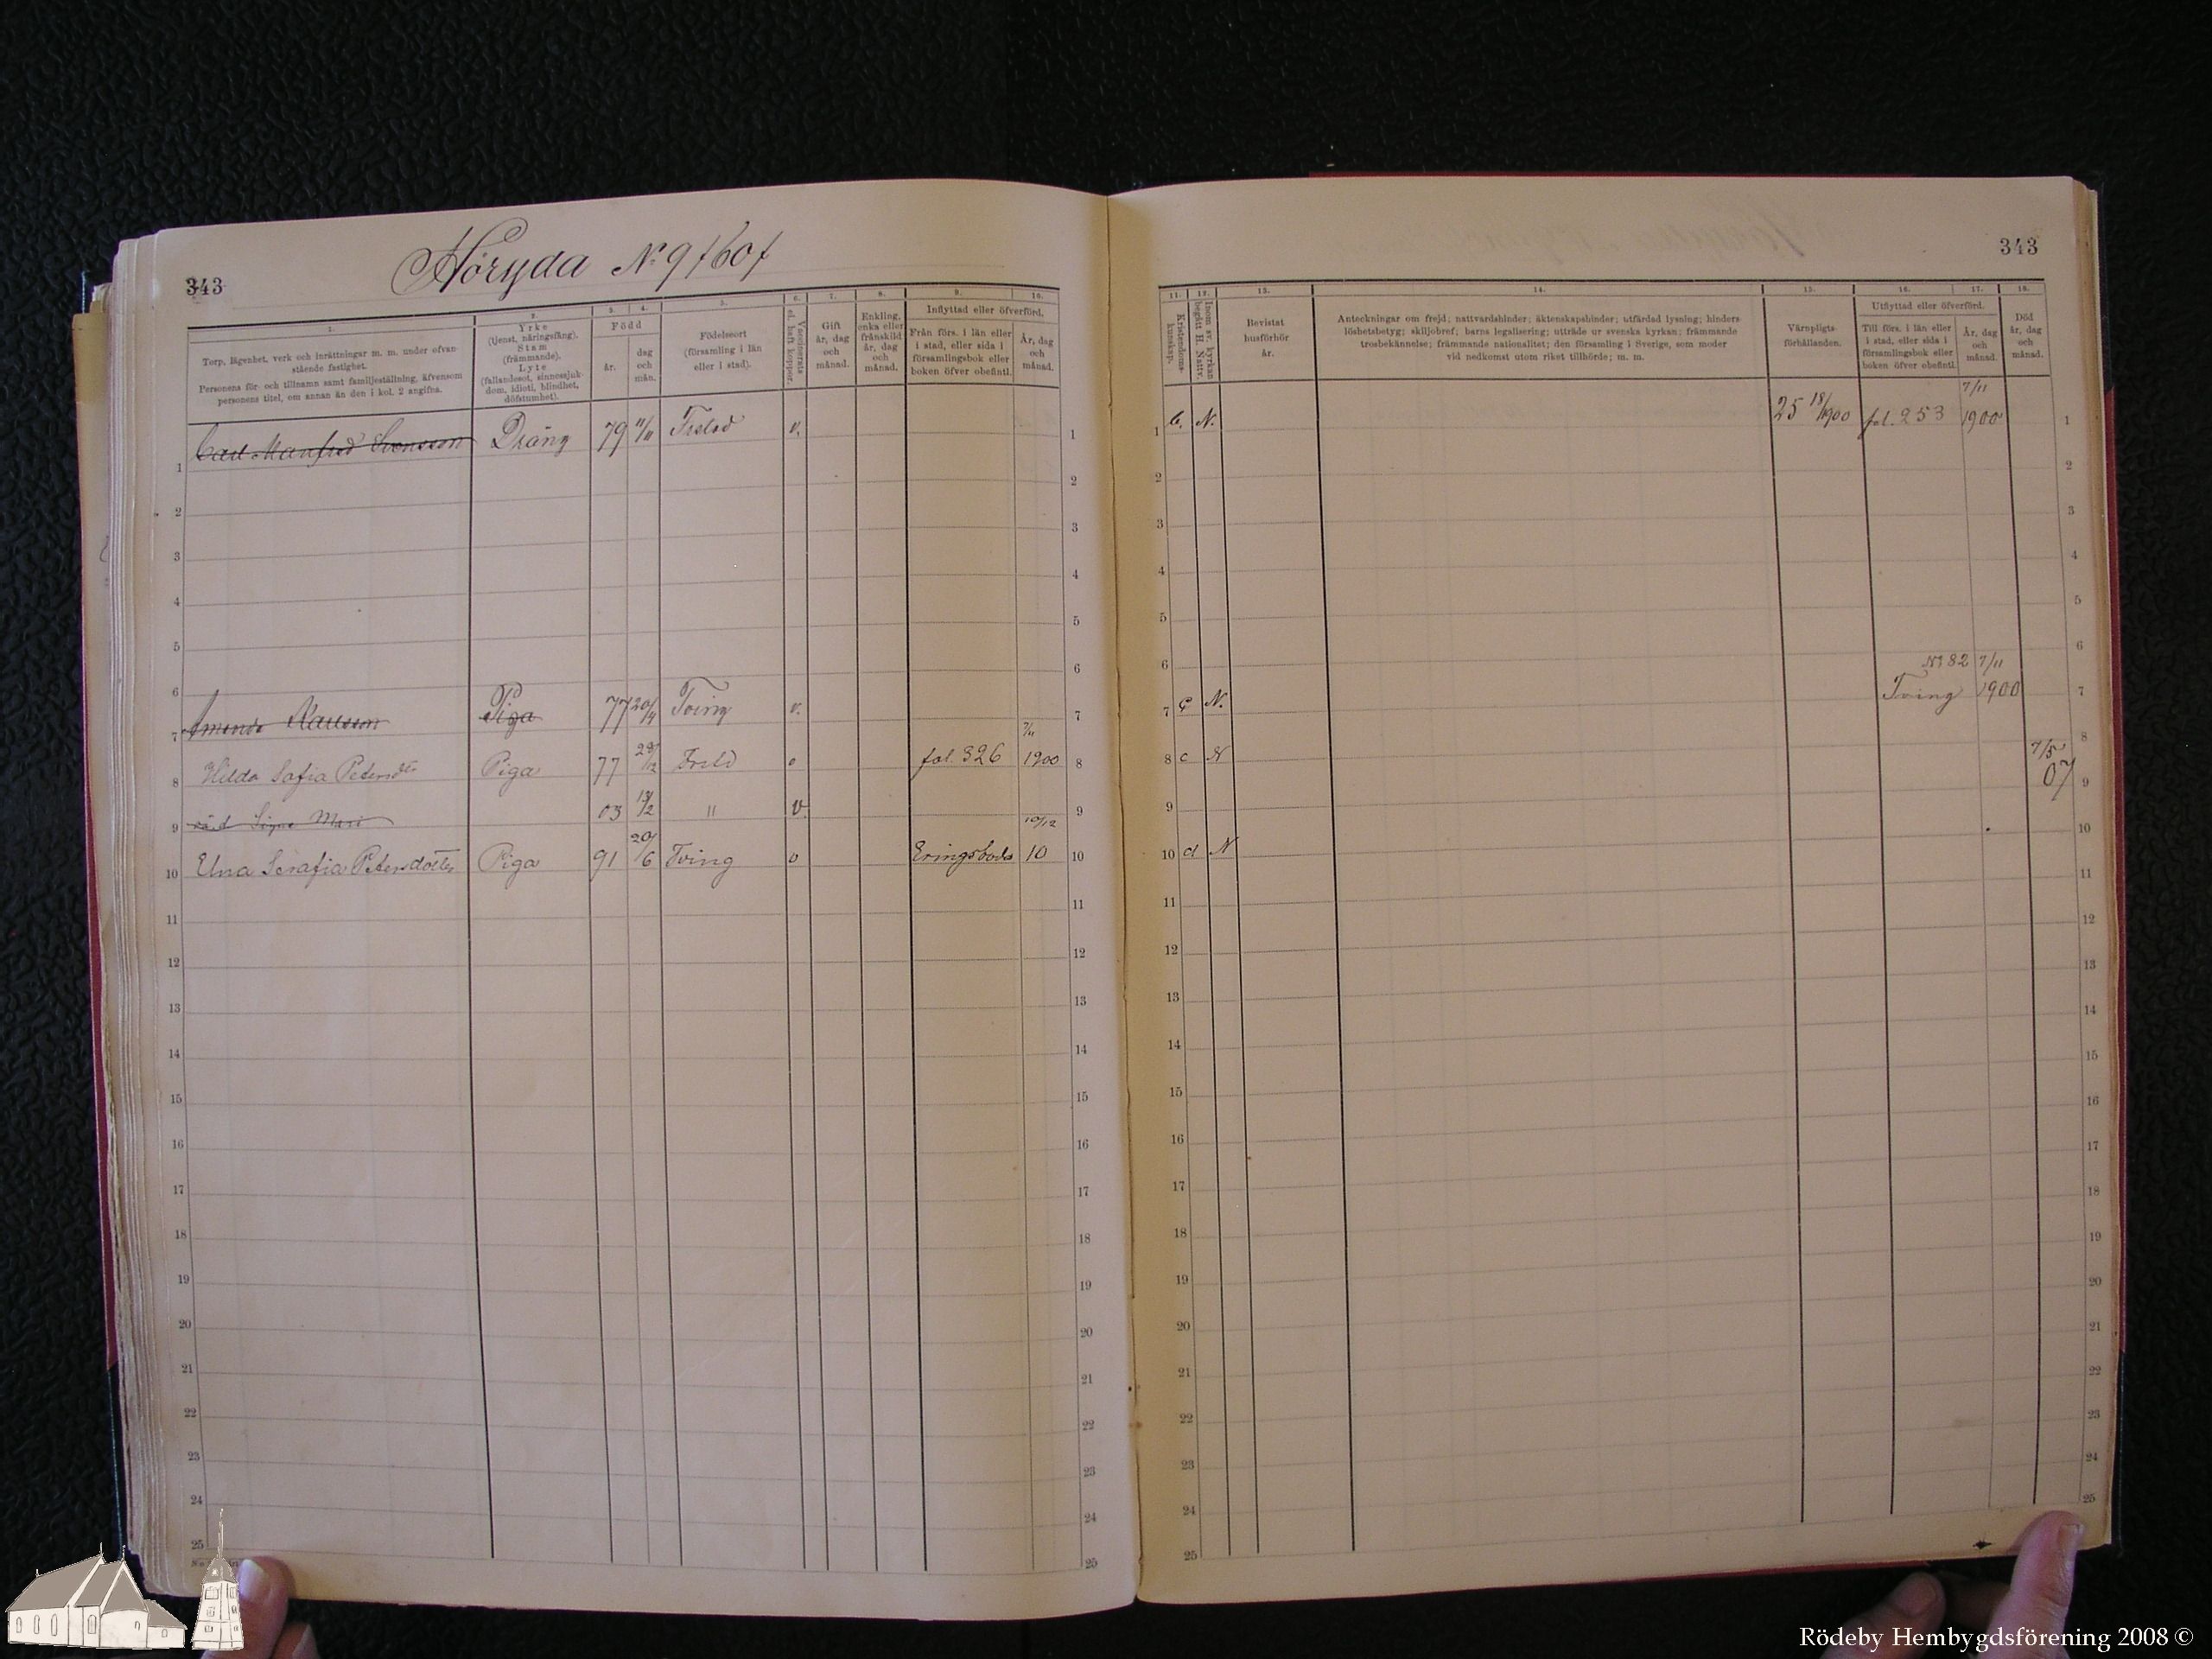 343
Höryda No 9 /60/
1.
Torp, lägenhet, verk och inrättningar m. m. under ofvan-
stående fastighet.
Personens för- och tillnamn samt familjeställning, äfvensom
personens titel, om annan än den i kol. 2 angifna.
2.
Yrke
(tjenst, näringsfång).
Stam
(främmande).
Lyte
(fallandesot, sinnessjuk-
dom, idioti, blindhet,
döfstumhet).
3. 4.
Född
år.
dag
och
mån.
5.
Födelseort
(församling i län
eller i stad).
6.
Vaccinerats
el. haft koppor.
7.
Gift
år, dag
och
månad.
8.
Enkling,
enka eller
frånskild
år, dag
och
månad.
9. 10.
Inflyttad eller öfverförd,
Från förs. i län eller
i stad, eller sida i
församlingsbok eller
boken öfver obefintl.
År, dag
och
månad.
1 Carl Manfred Svensson Dräng 79 11/11 v. 1
2 2
3 3
4 4
5 5
6 6
7 Amanda Karlsson Piga 77 20/4 Tving v. 7
7/11
8 Hilda Sofia Petersdr Piga 77 28/12 fol. 326 1900 8
9 Signe Mari 03 13/2 " v. 9
10/12
10 Elna Serafia Petersdotter Piga 91 20/6 Tving v Eringsboda 10 10
11 11
12 12
13 13
14 14
15 15
16 16
17 17
18 18
19 19
20 20
21 21
22 22
23 23
24 24
25 25
343
11.
Kristendoms-
kunskap.
12.
Inom sv. kyrkan
begått H. Nattv.
13.
Bevistat
husförhör
år.
14.
Anteckningar om frejd; nattvardshinder; äktenskapshinder; utfärdad lysning; hinders-
löshetsbetyg; skiljobref; barns legalisering; utträde ur svenska kyrkan; främmande
trosbekännelse; främmande nationalitet; den församling i Sverige, som moder
vid nedkomst utom riket tillhörde; m. m.
15.
Värnpligts-
förhållanden.
16. 17.
Utflyttad eller öfverförd.
Till förs. i län eller
i stad, eller sida i
församlingsbok eller
boken öfver obefintl.
År, dag
och
månad.
18.
Död
år, dag
och
månad.
7/11
1 b. N. 25 18/1900 fol. 253 1900 1
2 2
3 3
4 4
5 5
6 6
No 82 7/11
7 c N. Tving 1900 7
8 c N 7/5 07 8
9 9
10 d N 10
11 11
12 12
13 13
14 14
15 15
16 16
17 17
18 18
19 19
20 20
21 21
22 22
23 23
24 24
25 25
Rödeby Hembygdsförening 2008 ©